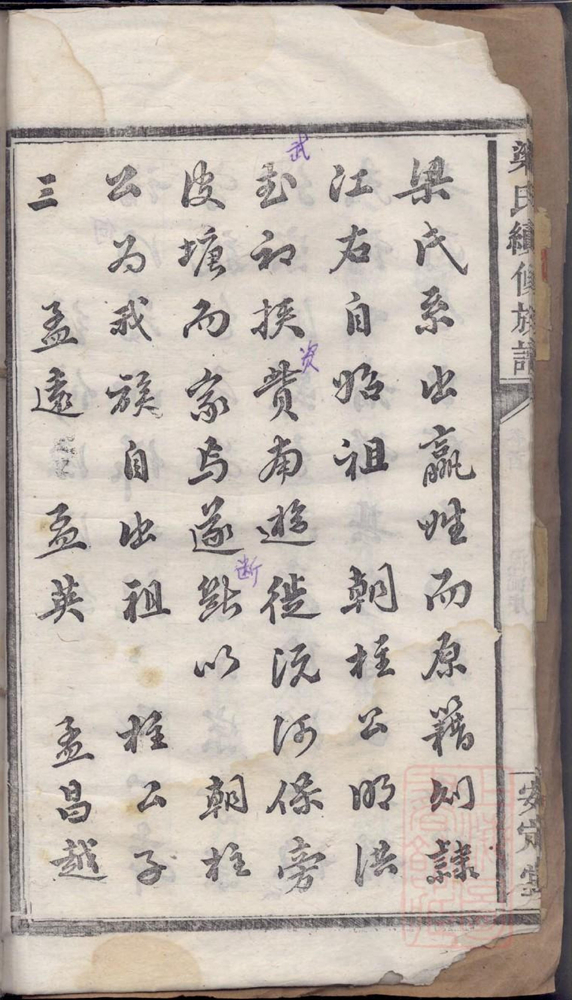 梁氏續修族譜
安定堂
梁氏系出嬴姓而原籍則隸
江右自始祖 朝柱公明洪
武初挾費南遊徙沅河保旁
皮塘而家焉遂斷以 朝柱
公為我族自出祖 柱公子
三 孟遠 孟英 孟昌越
武
资
断